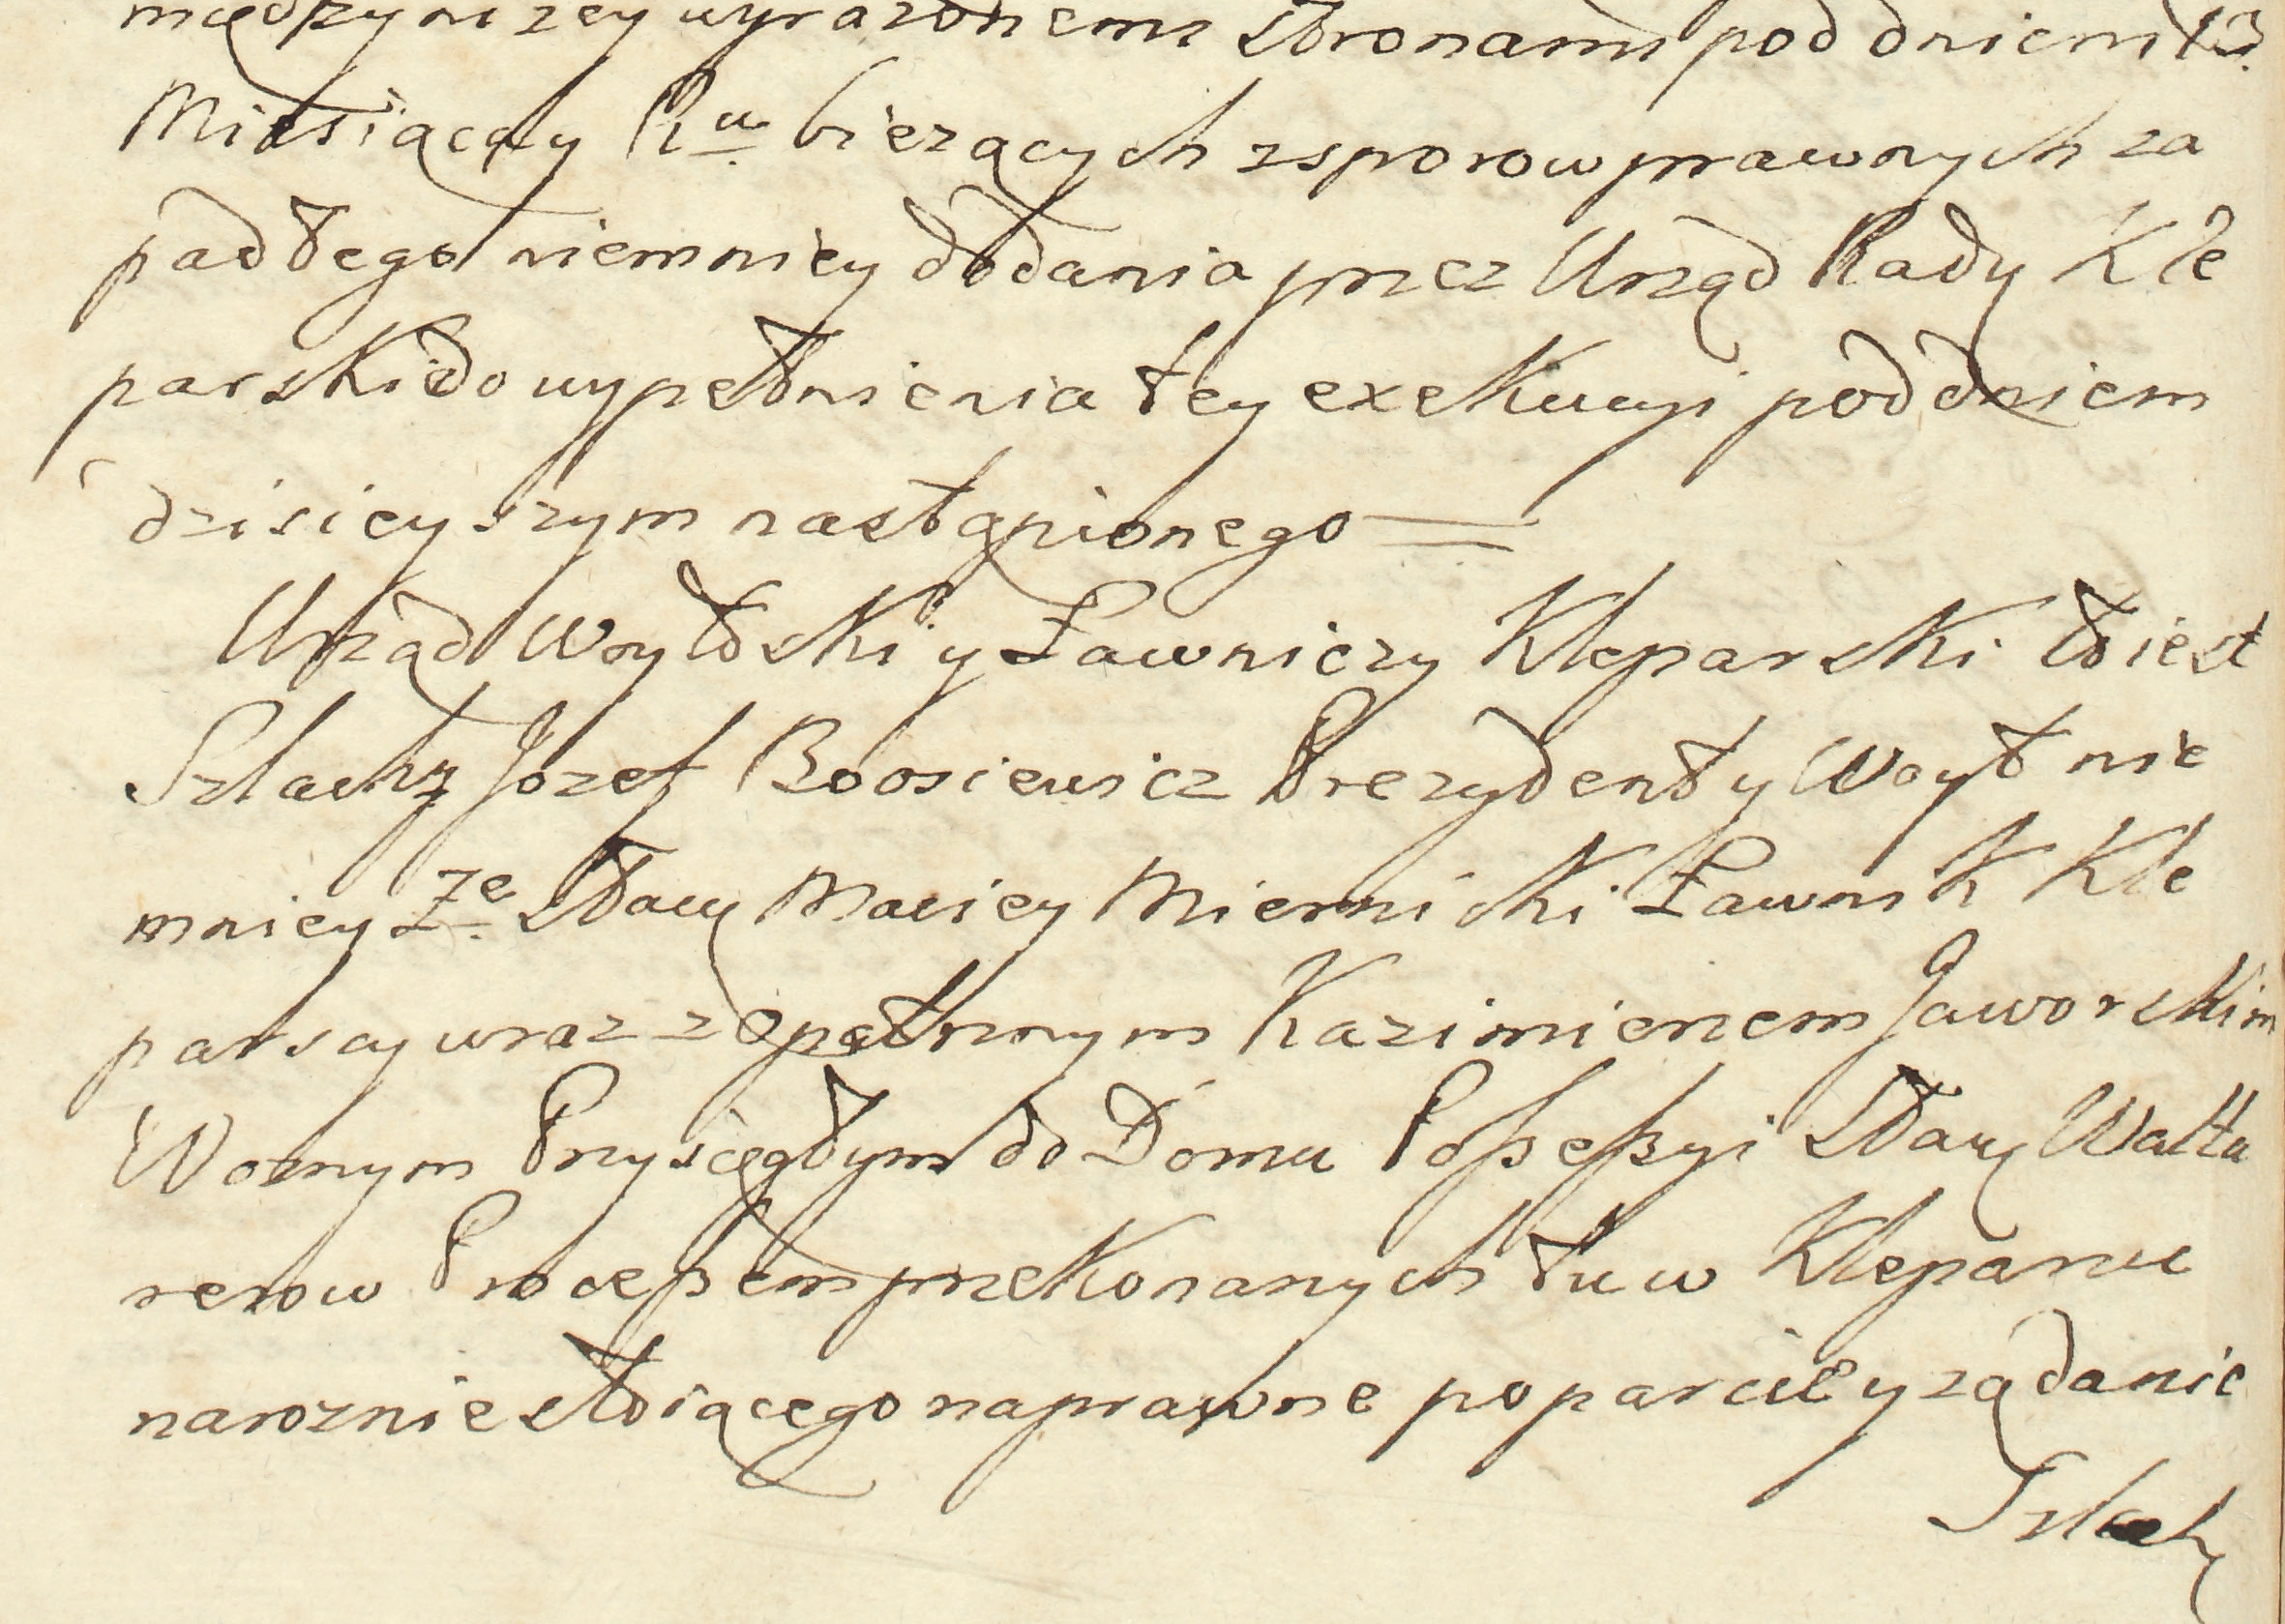 między niżey wyrazonemi Stronami pod dniem 13.
Miesiąca y Ru. bieżących z sporow prawnych za
padłego niemniey dodania przez Urząd Rady Kle
parski do wypełnienia tey exekucyi pod dniem
dzisieyszym nastąpionego =
Urząd Woytowski y Ławniczy Kleparski to iest
Szlachy Jozef Boosiewicz Prezydent y Woyt nie
mniey Ze Sławy Maciey Miernicki Ławnik Kle
parscy wraz z Opatrznym Kazimierzem Jaworskim
Woznym Przysięgłym do Domu Possessyi Sław Walta
rerow Processem przekonanych tu w Kleparzu
naroznie stoiącego na prawne poparcie y ządanie
Szlach